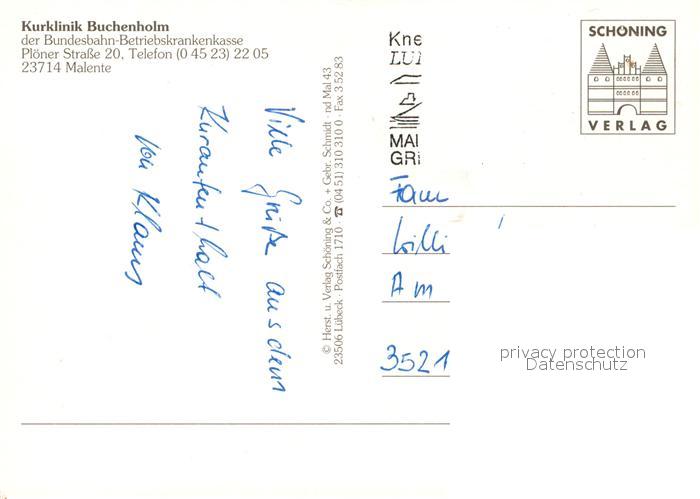 Kurklinik Buchenholm
der Bundesbahn-Betriebskrankenkasse
Plöner Straße 20, Telefon (0 45 23) 22 05
23714 Malente
Viele Grüße aus dem
Kuraufenthalt
von Klaus
© Herst. u. Verlag Schöning & Co. + Gebr. Schmidt · nd Mal 43
23506 Lübeck · Postfach 1710 · ☎ (04 51) 310 310 0 · Fax 3 52 83
Kne
LUI
MAI
GRI
SCHÖNING
VERLAG
Fam
Willi
Am
3521
privacy protection
Datenschutz